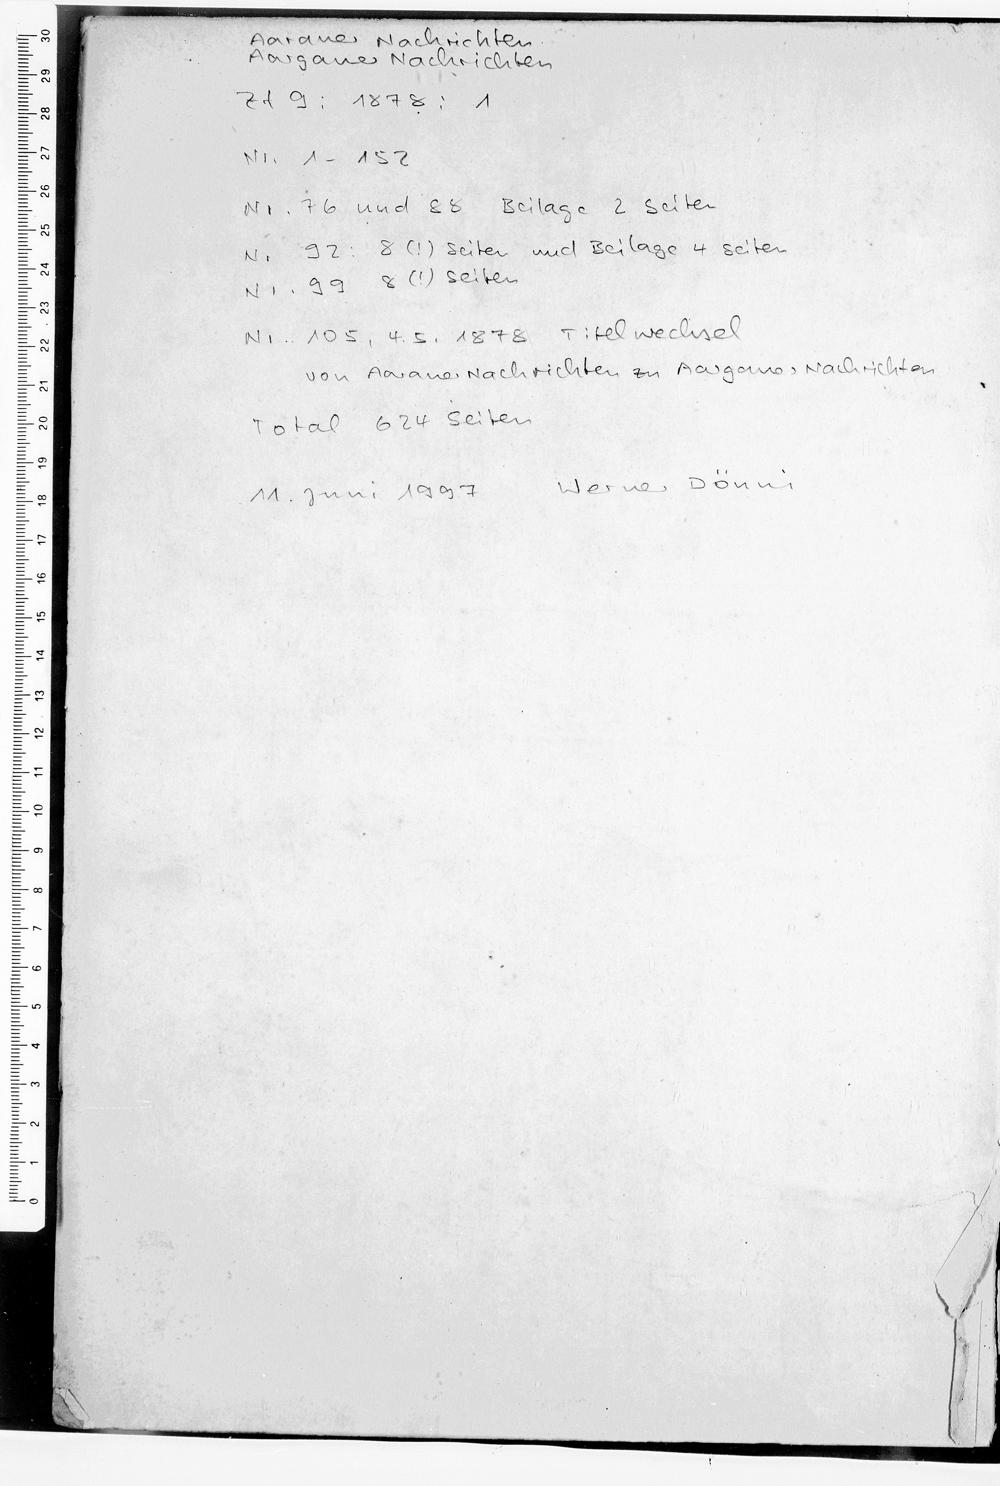 Aarauer Nachrichten
Aargauer Nachrichten
Zt 9 : 1878 : 1
Nr. 1 - 152
Nr. 76 und 88 Beilage 2 Seiten
Nr. 92: 8 (!) Seiten und Beilage 4 Seiten
Nr. 99 8 (!) Seiten
Nr. 105, 4.5. 1878 Titelwechsel
von Aarauer Nachrichten zu Aargauer Nachrichten
Total 624 Seiten
11. Juni 1997 Werner Dönni
30
29
28
27
26
25
24
23
22
21
20
19
18
17
16
15
14
13
12
11
10
9
8
7
6
5
4
3
2
1
0